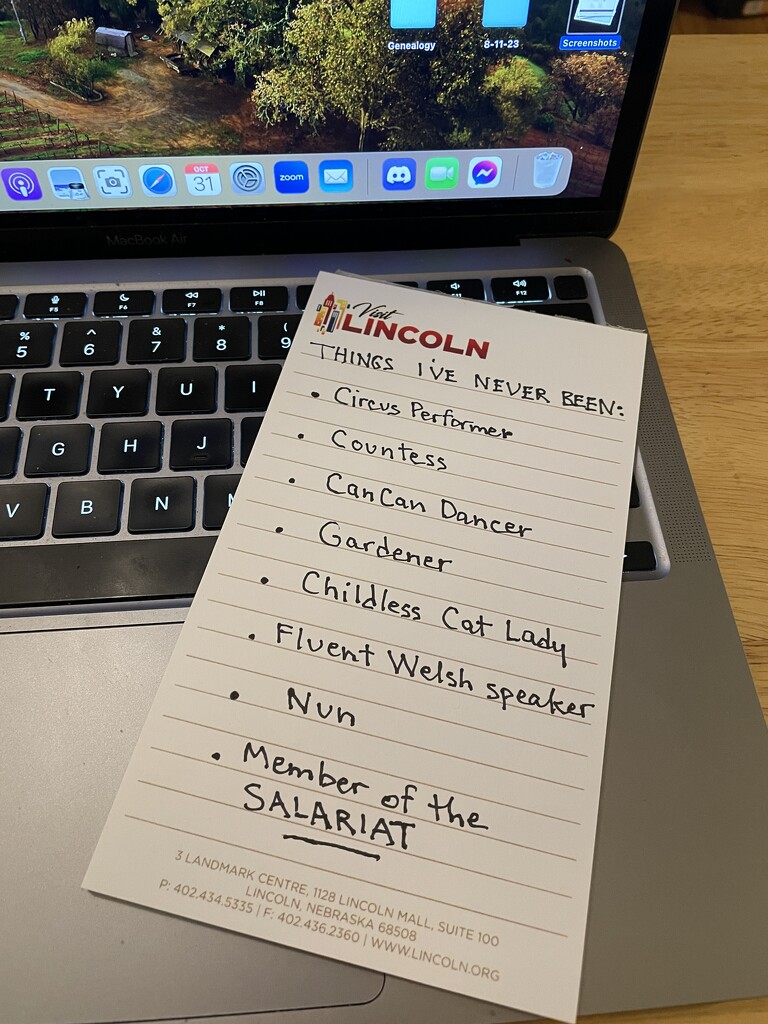 Genealogy
8-11-23
Screenshots
OCT
31
zoom
MacBook Air
F5
F6
F7
F8
F11
F12
%
5
^
6
&
7
*
8
(
9
T
Y
U
I
G
H
J
V
B
N
Visit
LINCOLN
THINGS I'VE NEVER BEEN:
• Circus Performer
• Countess
• CanCan Dancer
• Gardener
• Childless Cat Lady
• Fluent Welsh speaker
• Nun
• Member of the
SALARIAT
3 LANDMARK CENTRE, 1128 LINCOLN MALL, SUITE 100
LINCOLN, NEBRASKA 68508
P: 402.434.5335 | F: 402.436.2360 | WWW.LINCOLN.ORG